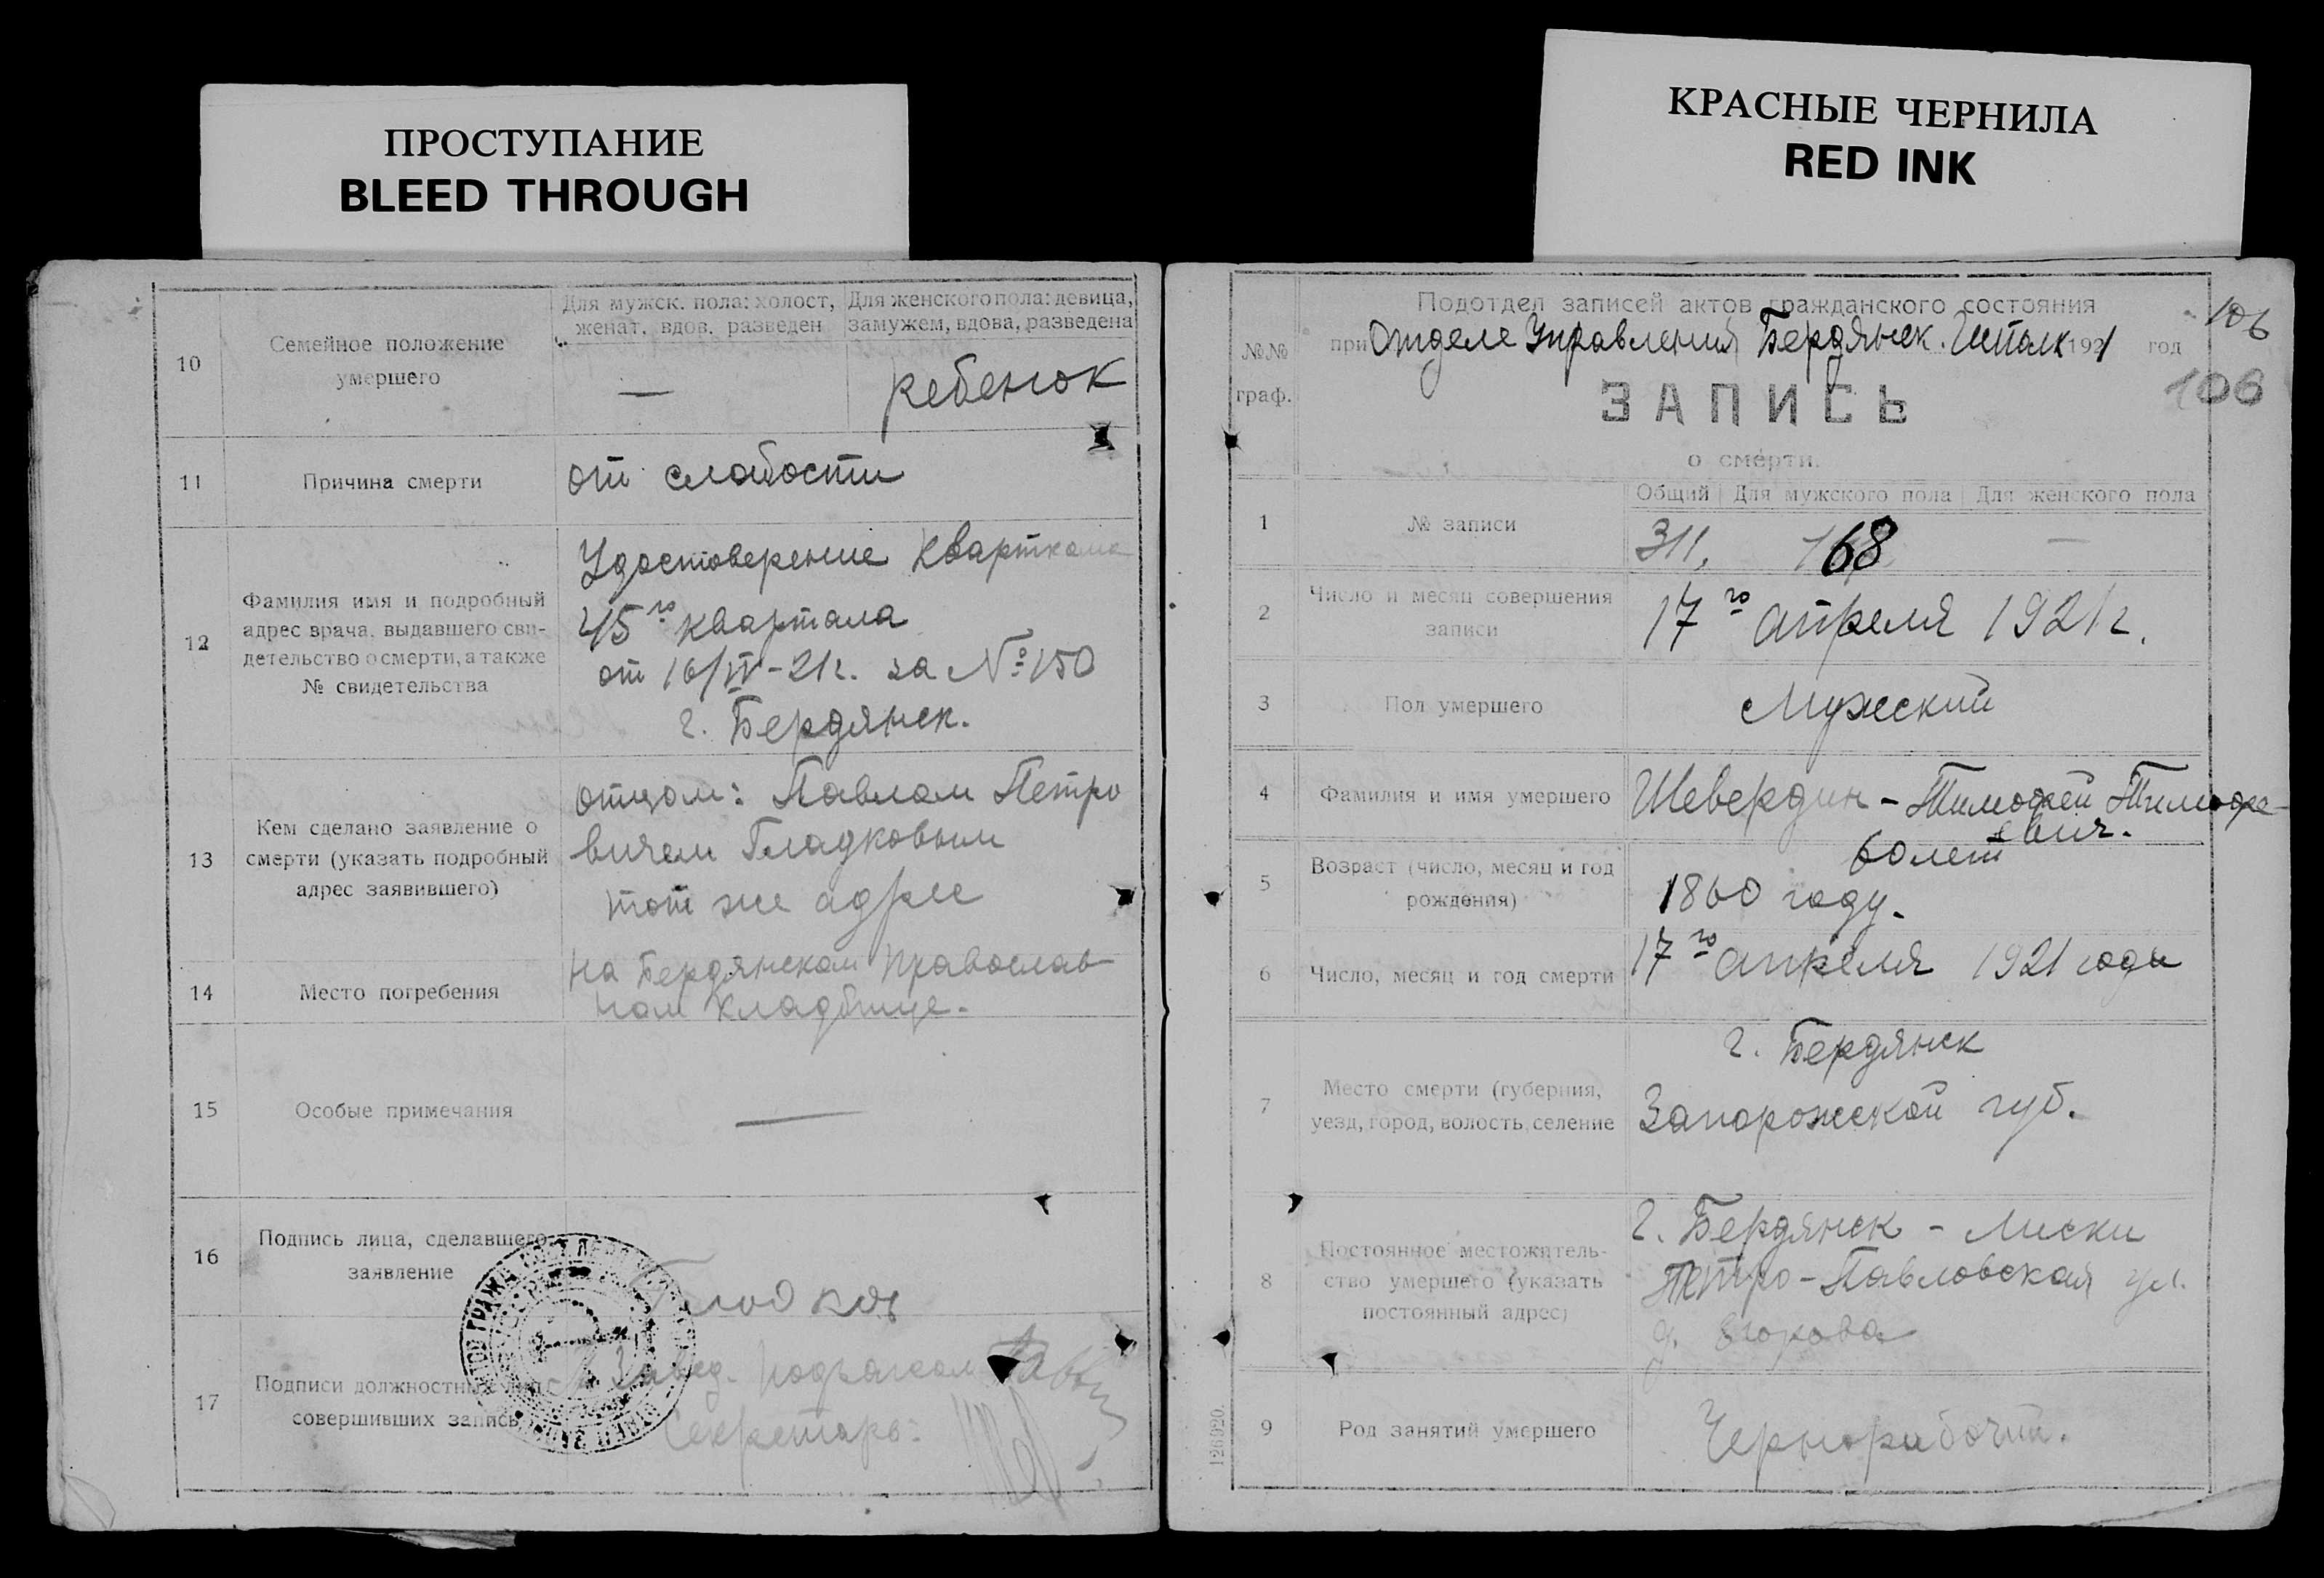 ПРОСТУПАНИЕ
BLEED THROUGH
КРАСНЫЕ ЧЕРНИЛА
RED INK
10
Семейное положение
умершего
Для мужск. пола: холост,
женат, вдов, разведен
—
Для женского пола: девица,
замужем, вдова, разведена
ребенок
11
Причина смерти
от слабости
12
Фамилия имя и подробный
адрес врача, выдавшего сви-
детельство о смерти, а также
№ свидетельства
Удостоверение Кварткома
45го квартала
от 16/IV-21г. за № 150
г. Бердянск.
13
Кем сделано заявление о
смерти (указать подробный
адрес заявившего)
отцом: Павлом Петро
вичем Гладковым
тот же адрес
14
Место погребения
На Бердянском православ
ном кладбище.
15
Особые примечания
—
16
Подпись лица, сделавшего
заявление
17
Подписи должностных лиц
совершивших запись
Завед. подъотделом
Секретарь:
№№
граф.
Подотдел записей актов гражданского состояния
при Отделе Управления Бердянск. 1921 год
106
106
ЗАПИСЬ
о смерти.
1
№ записи
Общий
Для мужского пола
Для женского пола
311, 168 —
2
Число и месяц совершения
записи
17го апреля 1921 г.
3
Пол умершего
Мужский
4
Фамилия и имя умершего
Шевердин - Тимофей Тимофе-
евич.
5
Возраст (число, месяц и год
рождения)
60 лет
1860 году.
6
Число, месяц и год смерти
17го апреля 1921 года
7
Место смерти (губерния,
уезд, город, волость, селение
г. Бердянск
Запорожской губ.
8
Постоянное местожитель-
ство умершего (указать
постоянный адрес)
г. Бердянск - Лиски
Петро-Павловская ул.
9
Род занятий умершего
Чернорабочий.
126920.